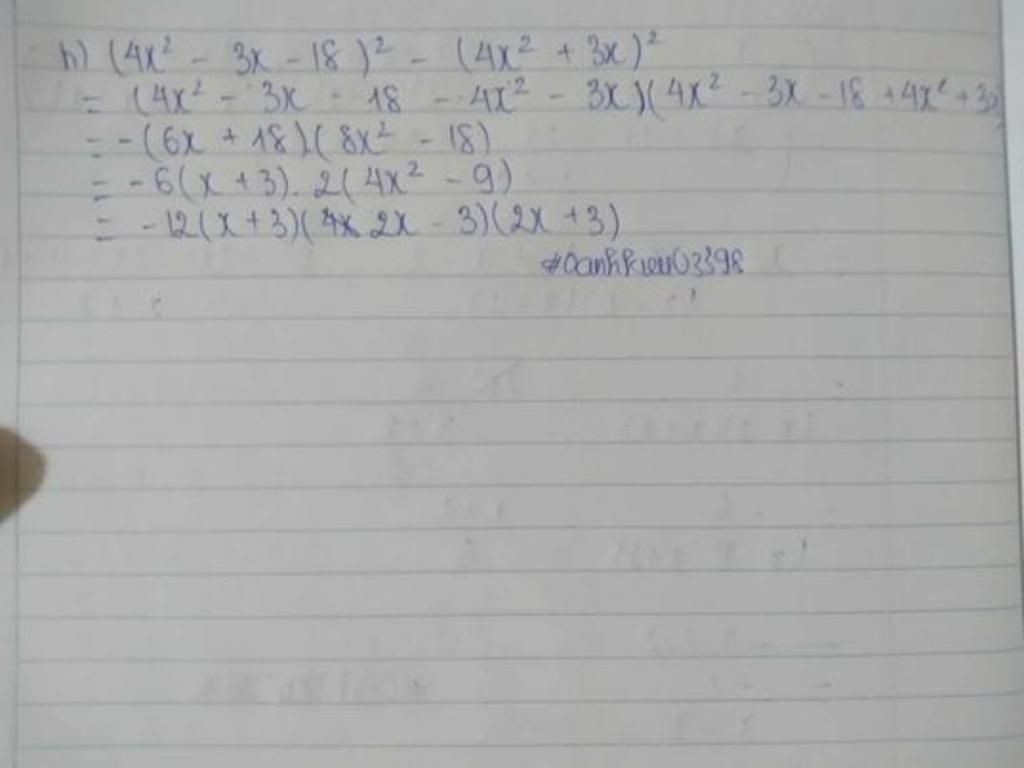 h) (4x² - 3x - 18)² - (4x² + 3x)²
= (4x² - 3x - 18 - 4x² - 3x)(4x² - 3x - 18 + 4x² + 3x)
= -(6x + 18)(8x² - 18)
= -6(x + 3). 2(4x² - 9)
= -12(x + 3)(2x - 3)(2x + 3)